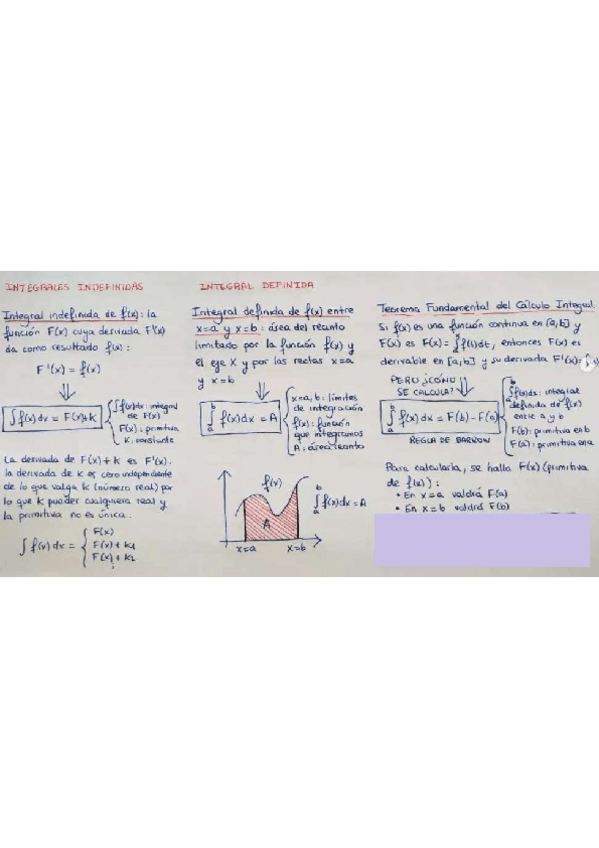 INTEGRALES INDEFINIDAS
Integral indefinida de f(x): la
función F(x) cuya derivada F'(x)
da como resultado f(x):
F'(x) = f(x)
∫f(x)dx = F(x)+k
∫f(x)dx: integral
de F(x)
F(x): primitiva
K: constante
La derivada de F(x)+k es F'(x).
la derivada de k es cero independiente
de lo que valga k (número real) por
lo que k puede ser cualquiera real y
la primitiva no es única.
∫f(x)dx =
F(x)
F(x)+k1
F(x)+k2
INTEGRAL DEFINIDA
Integral definida de f(x) entre
x=a y x=b: área del recinto
limitado por la función f(x) y
el eje X y por las rectas x=a
y x=b
∫ₐᵇ f(x)dx = A
x=a, b: límites
de integración
f(x): función
que integramos
A: área recinto
f(x)
A
x=a x=b
∫ₐᵇ f(x)dx = A
Teorema Fundamental del Cálculo Integral
Si f(x) es una función continua en [a,b] y
F(x) es F(x) = ∫ f(t)dt, entonces F(x) es
derivable en [a,b] y su derivada F'(x)=
PERO ¿CÓMO
SE CALCULA?
∫ₐᵇ f(x)dx = F(b) - F(a)
REGLA DE BARROW
∫ₐᵇ f(x)dx: integral
definida de f(x)
entre a y b
F(b): primitiva en b
F(a): primitiva en a
Para calcularla, se halla F(x) (primitiva
de f(x)):
• En x=a valdrá F(a)
• En x=b valdrá F(b)